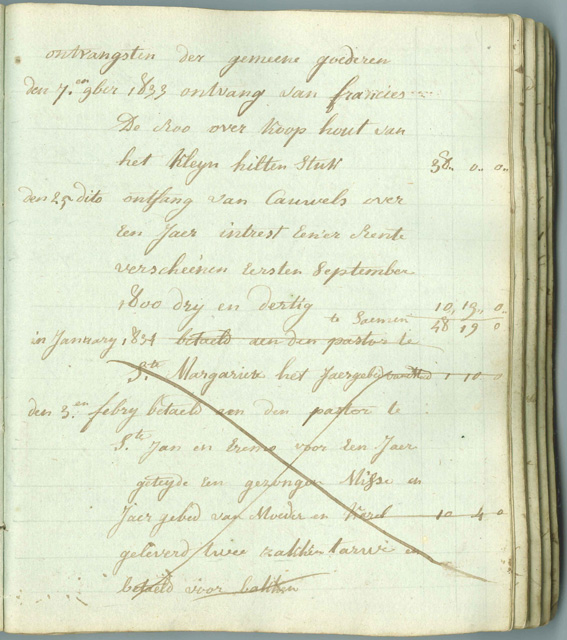 ontvangsten der gemeene goederen
den 7.en 9ber 1833 ontvang van francies
De Roo over Koop hout van
het Kleyn hilten Stuk 38.. 0.. 0..
den 25 dito ontfang van Cauwels over
Een Jaer intrest Eener Rente
verscheinen Eersten September
1800 dry en dertig 10, 19,, 0..
te Saemen 48 19 0
in January 1834 betaeld aen den pastor te
S.te Margariete het Jaergebed 1 10 0
den 3.en febry betaeld aen den pastor te
S.te Jan en Eremo voor Een Jaer
getyde Een gezongen Misse en
Jaer gebed van Moeder en 10 4 0
geleverd twee zakken tarwe en
betaeld voor bakken